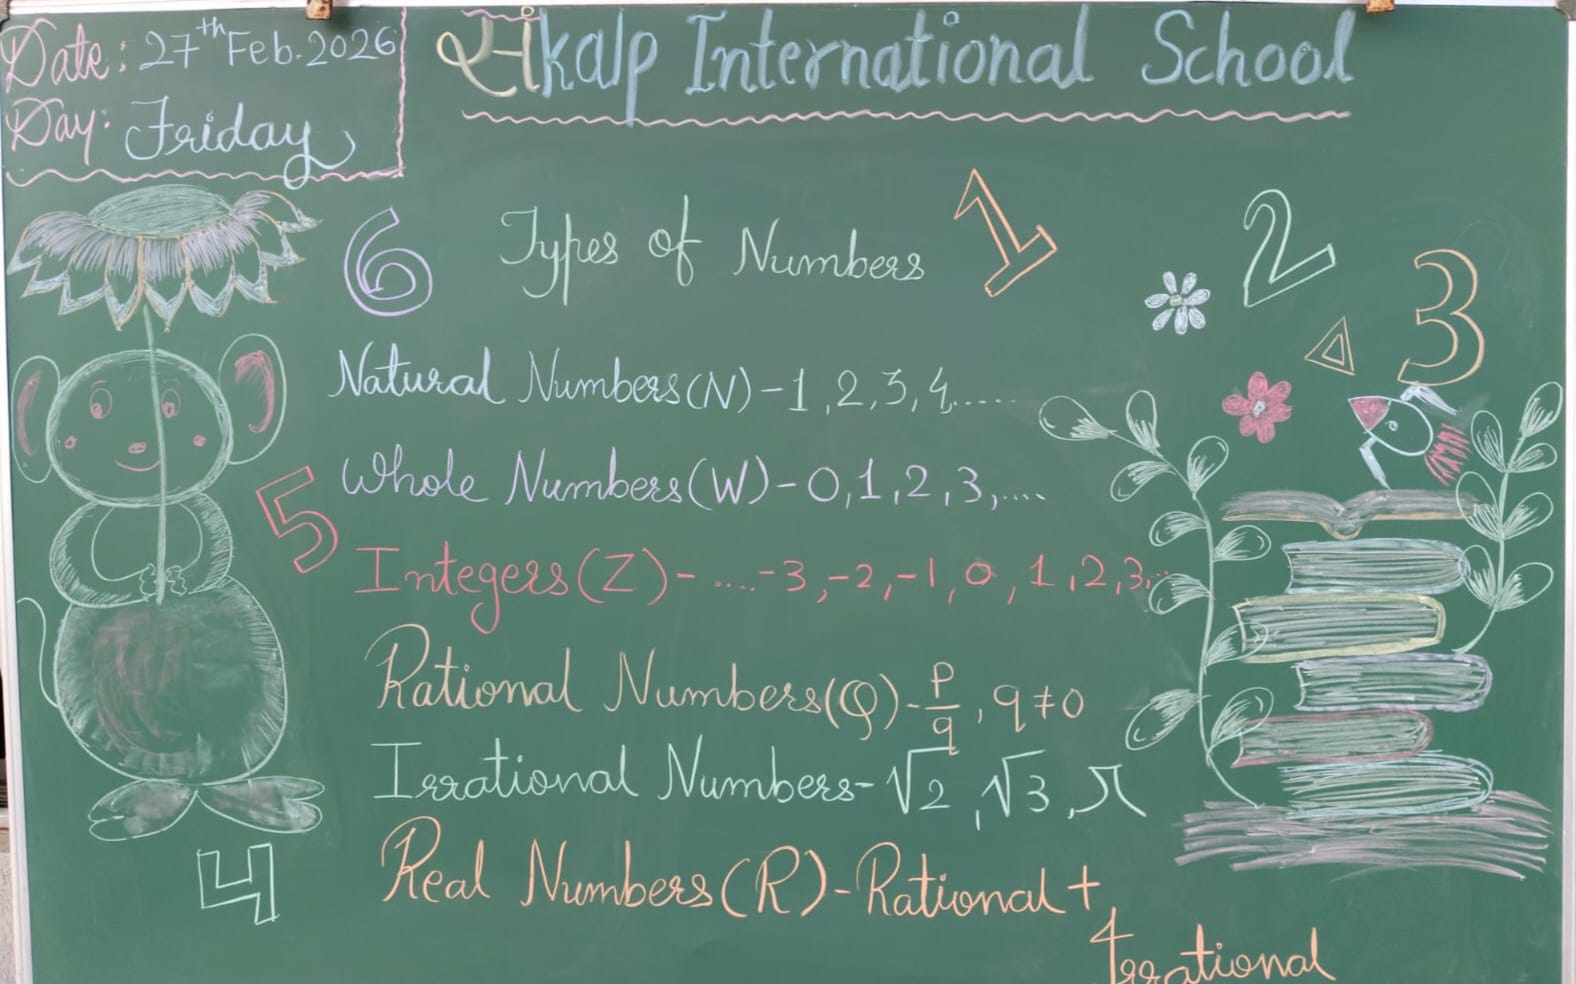 Date: 27th Feb. 2026
Day: Friday
संkalp International School
6 Types of Numbers 1 2 3
Natural Numbers (N) - 1, 2, 3, 4, .....
Whole Numbers (W) - 0, 1, 2, 3, ....
5
Integers (Z) - .... -3, -2, -1, 0, 1, 2, 3, ..
Rational Numbers (Q) - p/q, q ≠ 0
Irrational Numbers - √2, √3, π
4 Real Numbers (R) - Rational +
Irrational